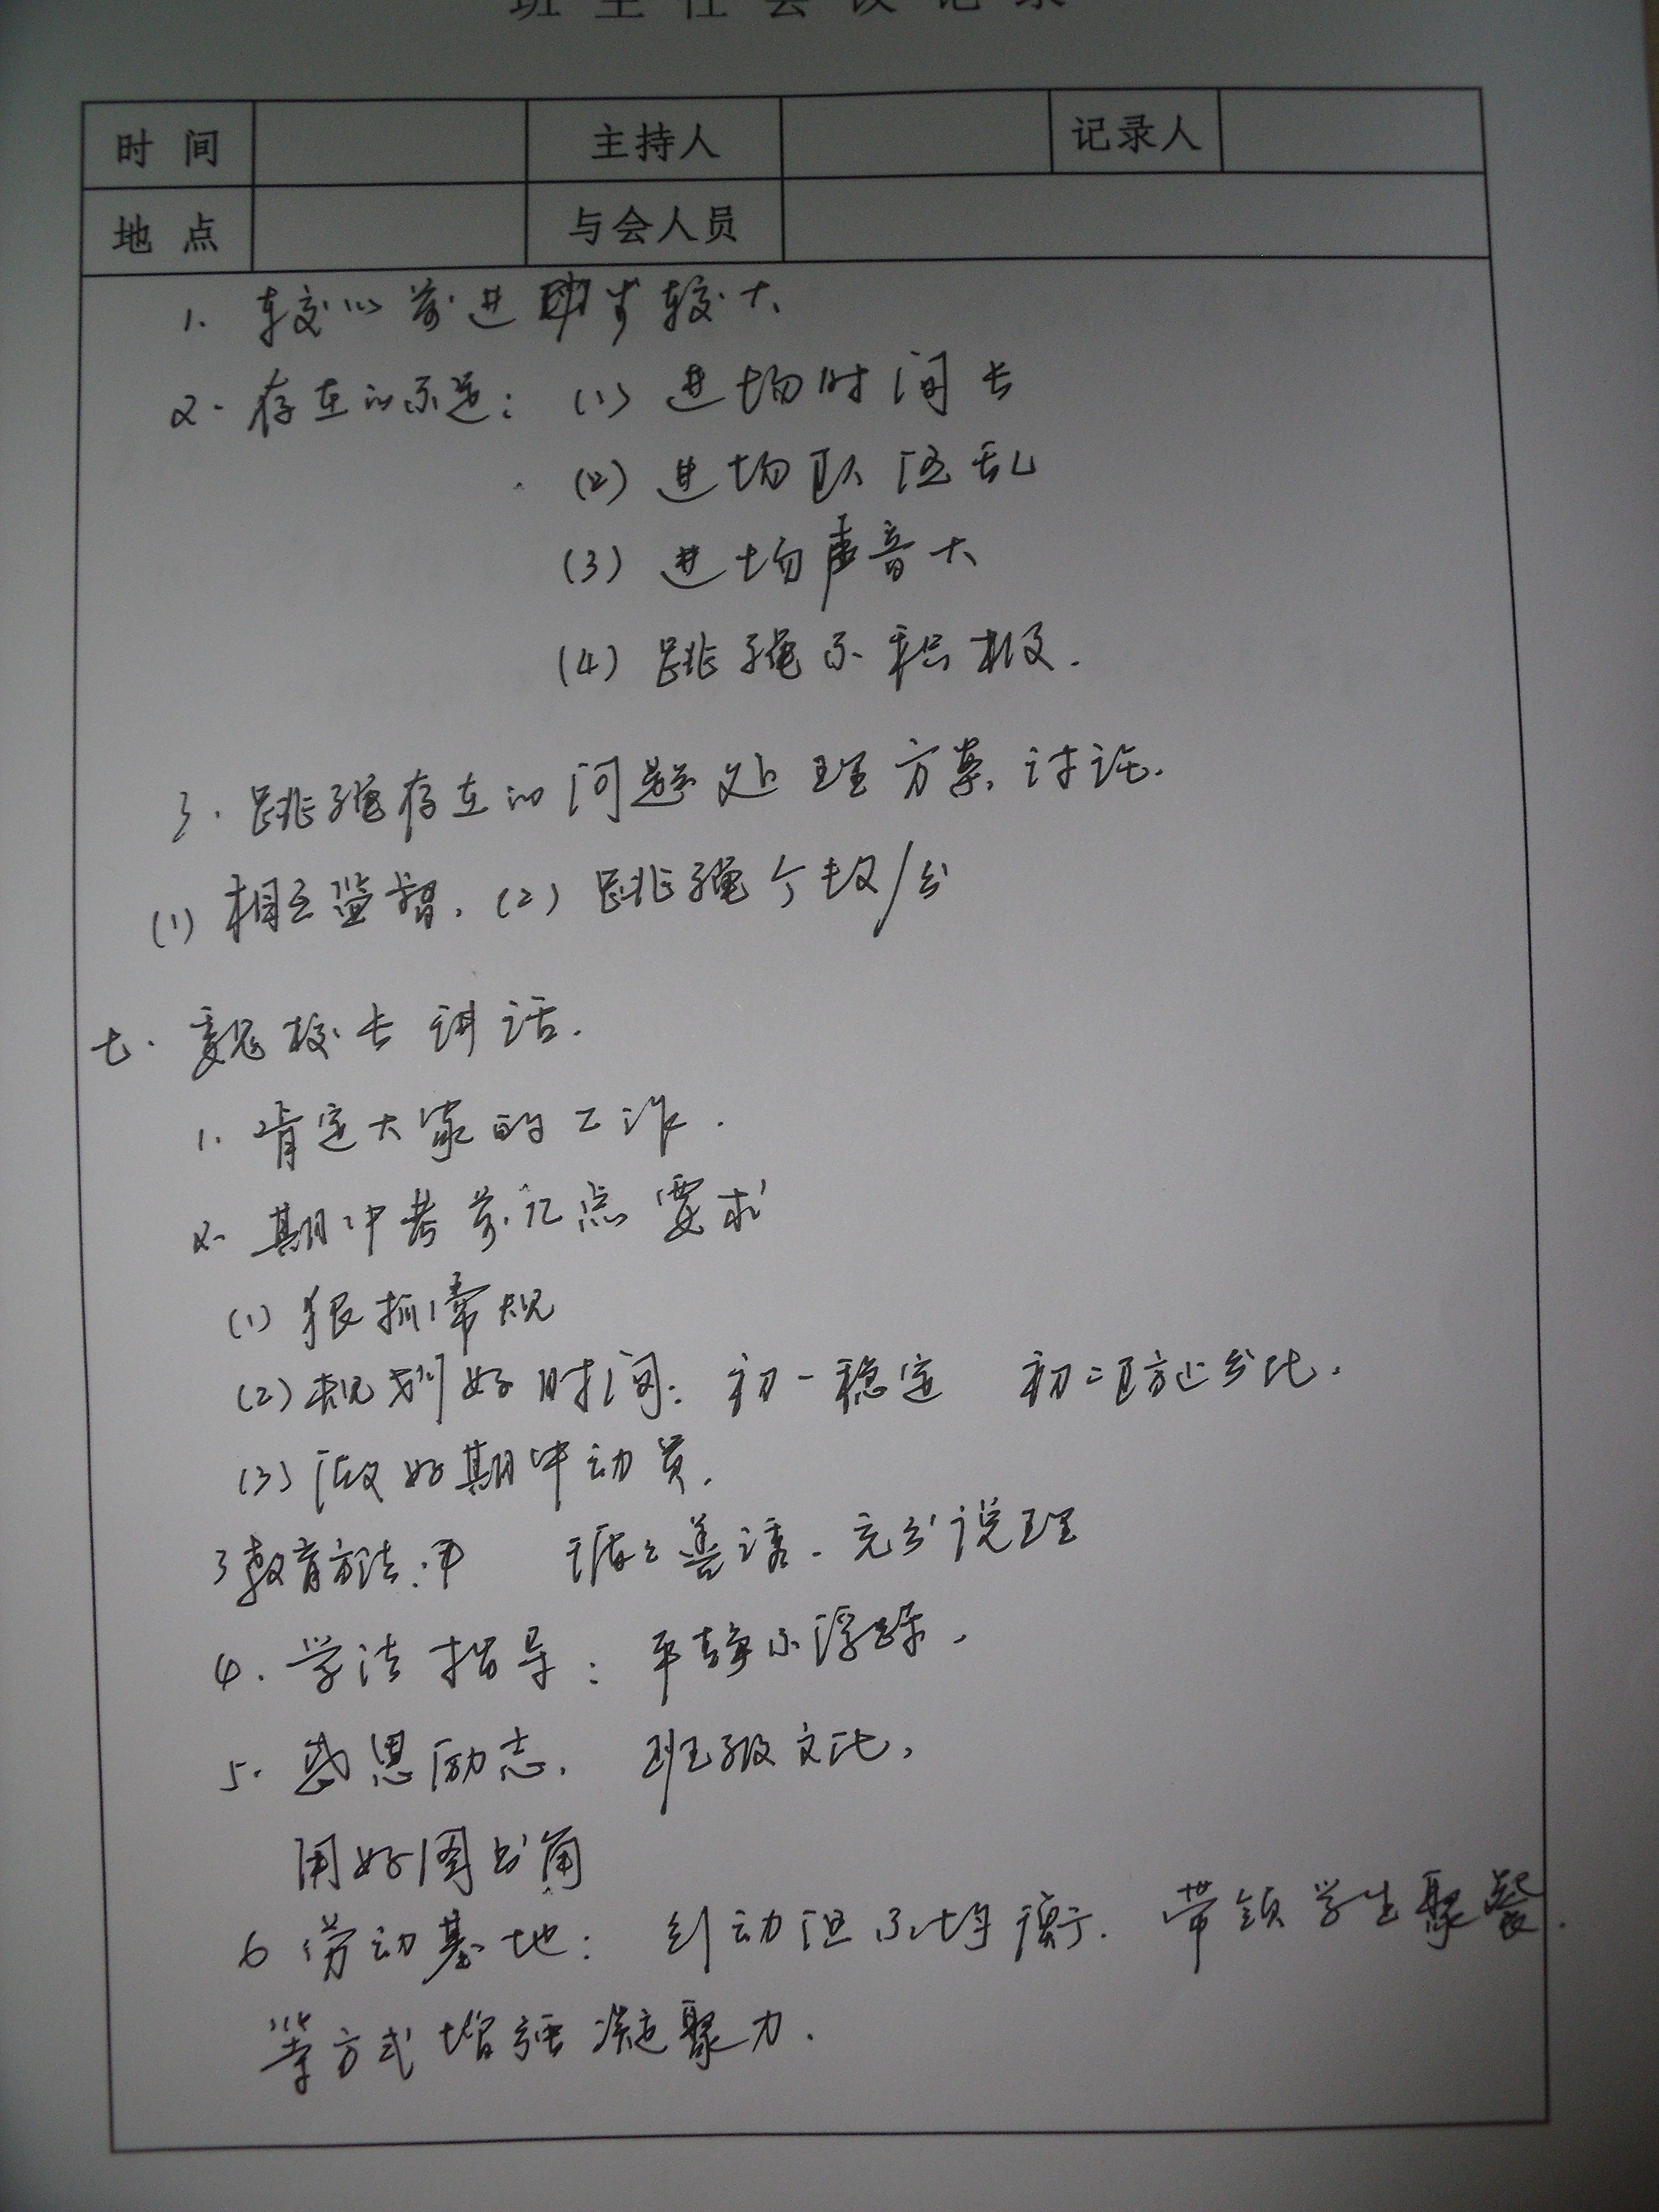 班主任会议记录
时间 主持人 记录人
地点 与会人员
1. 较以前进步较大
2. 存在的不足：(1) 进场时间长
(2) 进场队伍乱
(3) 进场声音大
(4) 跳绳不积极.
3. 跳绳存在的问题处理方案讨论.
(1) 相互监督. (2) 跳绳个数/分
七. 魏校长讲话.
1. 肯定大家的工作.
2. 期中考前几点要求
(1) 狠抓常规
(2) 规划好时间: 初一稳定 初二防止分化.
(3) 做好期中动员.
3 教育方法: 循循善诱. 充分说理
4. 学法指导: 平静不浮躁.
5. 感恩励志. 班级文化.
用好图书角
6 劳动基地: 但不均衡. 带领学生聚餐.
等方式增强凝聚力.